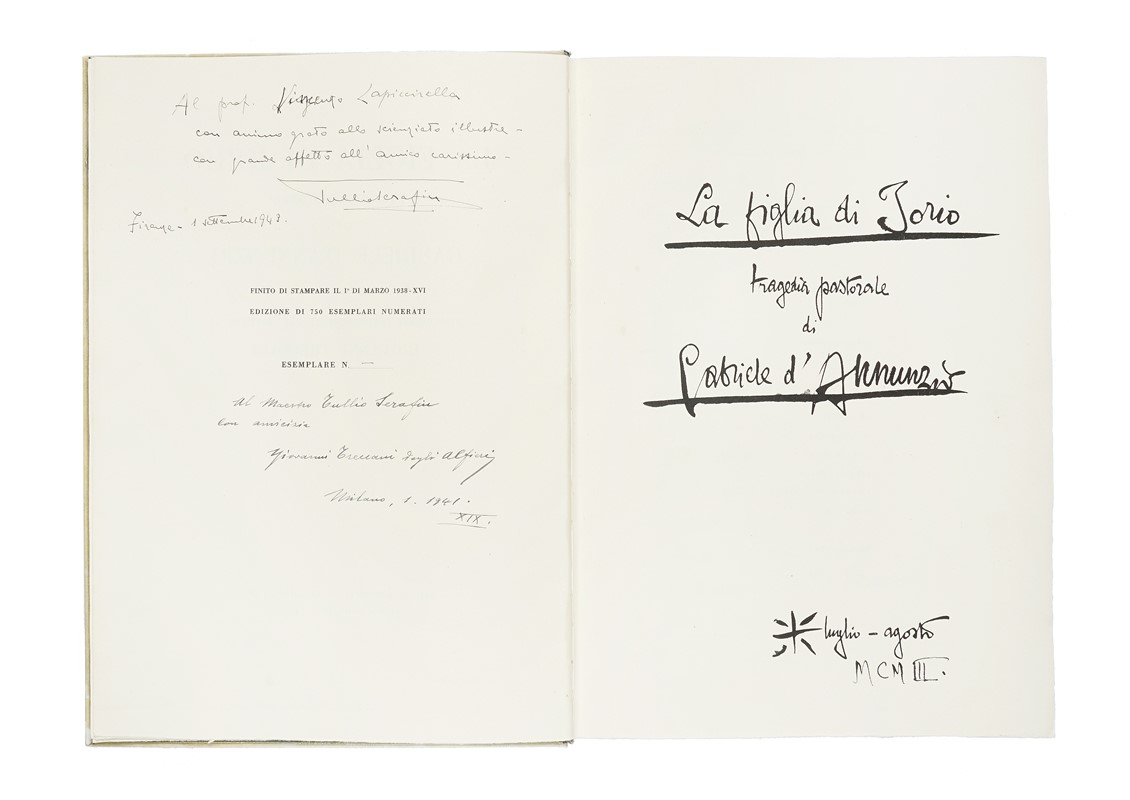 Al prof. Vincenzo Lapiccirella
con animo grato allo scienziato illustre -
con grande affetto all' amico carissimo -
Tullio Serafin
Firenze - 1 settembre 1943.
FINITO DI STAMPARE IL 1º DI MARZO 1938-XVI
EDIZIONE DI 750 ESEMPLARI NUMERATI
ESEMPLARE N. —
Al Maestro Tullio Serafin
con amicizia
Giovanni Treccani degli Alfieri
Milano, 1. 1941.
XIX.
La figlia di Jorio
tragedia pastorale
di
Gabriele d' Annunzio
luglio - agosto
MCMIII.